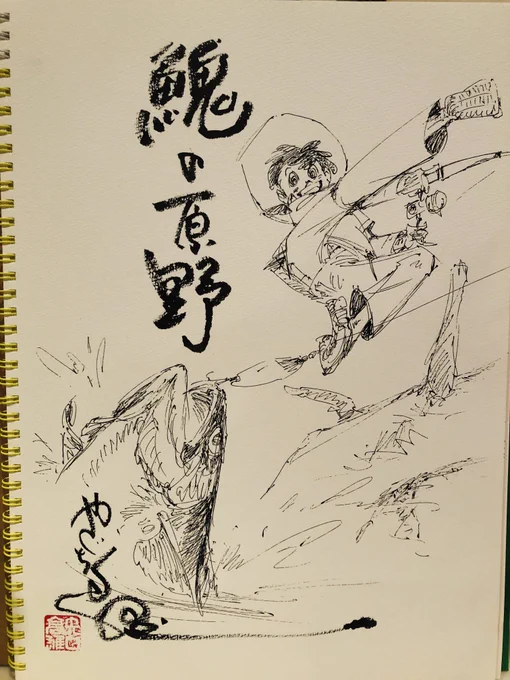 𩹷の原野
やぐち